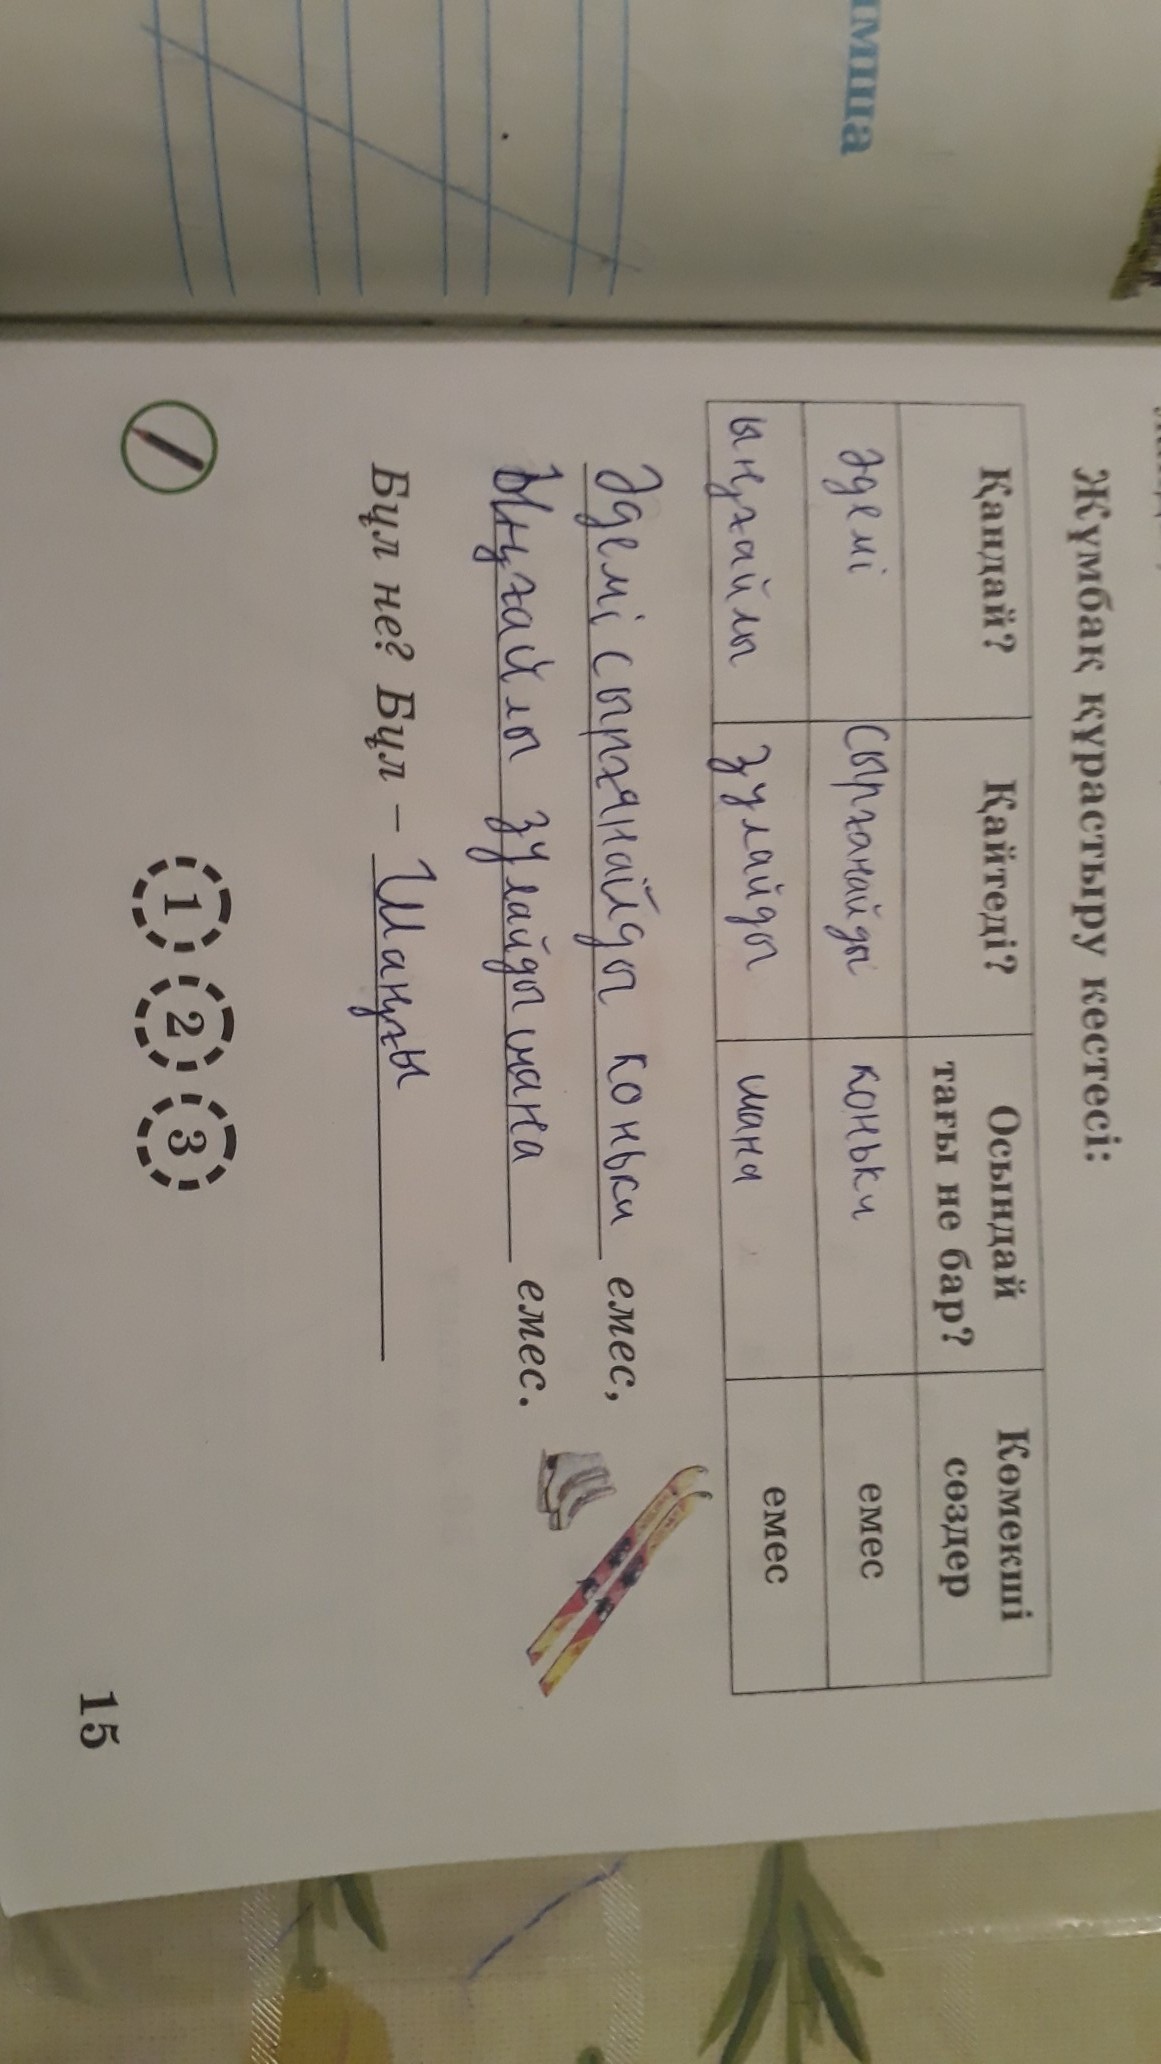 имша
Жұмбақ құрастыру кестесі:
Қандай? Қайтеді? Осындай тағы не бар? Көмекші сөздер
әдемі сырғанайды коньки емес
ыңғайлы зулайды шана емес
Әдемі сырғанайды коньки емес,
Ыңғайлы зулайды шана емес.
Бұл не? Бұл – Шаңғы
1 2 3
15